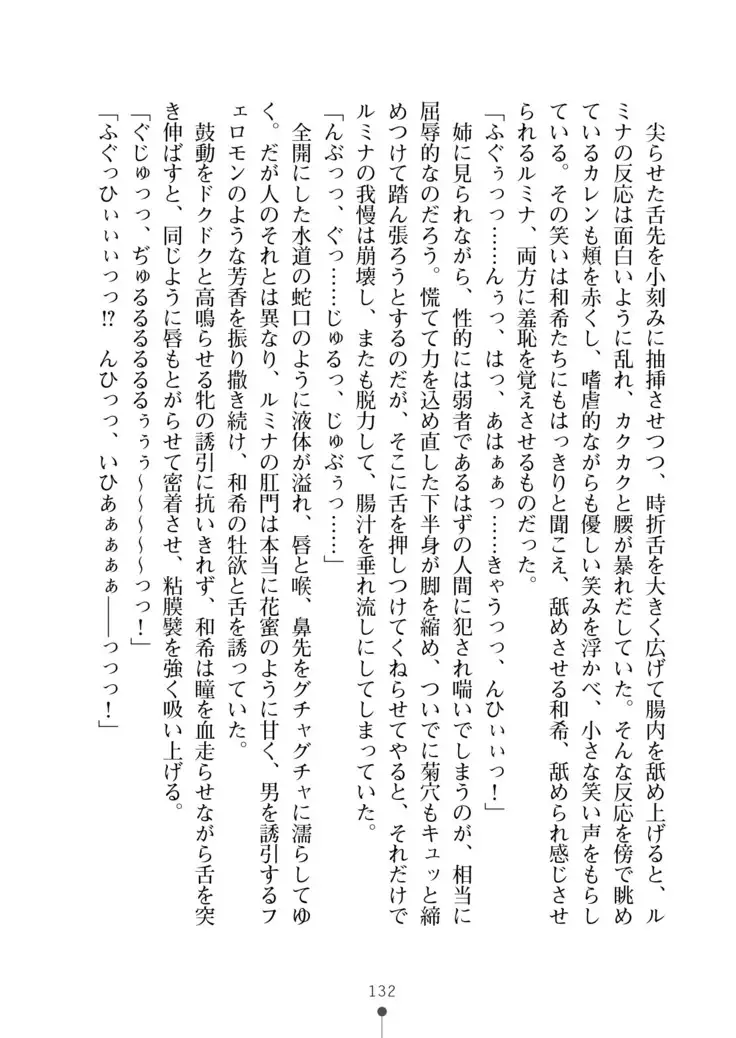 尖らせた舌先を小刻みに抽挿させつつ、時折舌を大きく広げて腸内を舐め上げると、ル
ミナの反応は面白いように乱れ、カクカクと腰が暴れだしていた。そんな反応を傍で眺め
ているカレンも頬を赤くし、嗜虐的ながらも優しい笑みを浮かべ、小さな笑い声をもらし
ている。その笑いは和希たちにもはっきりと聞こえ、舐めさせる和希、舐められ感じさせ
られるルミナ、両方に羞恥を覚えさせるものだった。
「ふぐぅっっ……んぅっ、はっ、あはぁぁっ……きゃうっっ、んひぃぃっ！」
　姉に見られながら、性的には弱者であるはずの人間に犯され喘いでしまうのが、相当に
屈辱的なのだろう。慌てて力を込め直した下半身が脚を縮め、ついでに菊穴もキュッと締
めつけて踏ん張ろうとするのだが、そこに舌を押しつけてくねらせてやると、それだけで
ルミナの我慢は崩壊し、またも脱力して、腸汁を垂れ流しにしてしまっていた。
「んぶっっ、ぐっ……じゅるっ、じゅぶぅっ……」
　全開にした水道の蛇口のように液体が溢れ、唇と喉、鼻先をグチャグチャに濡らしてゆ
く。だが人のそれとは異なり、ルミナの肛門は本当に花蜜のように甘く、男を誘引するフ
ェロモンのような芳香を振り撒き続け、和希の牡欲と舌を誘っていた。
　鼓動をドクドクと高鳴らせる牝の誘引に抗いきれず、和希は瞳を血走らせながら舌を突
き伸ばすと、同じように唇もとがらせて密着させ、粘膜襞を強く吸い上げる。
「ぐじゅっっ、ぢゅるるるるるるぅぅぅ～～～～～～っっ！」
「ふぐっひぃぃぃっっ!?　んひっっ、いひあぁぁぁぁ――っっっ！」
132